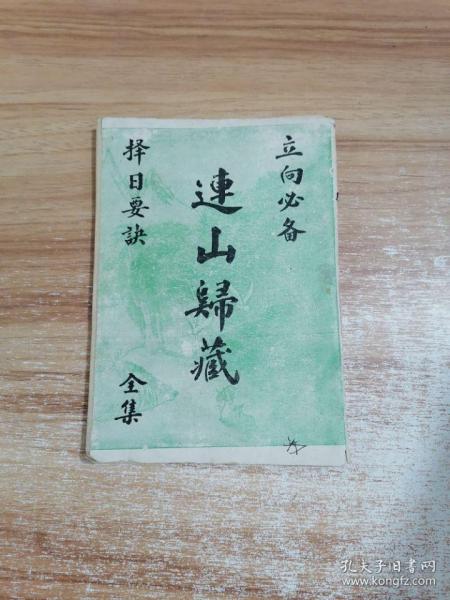 立向必备
連山歸藏
择日要訣
全集
孔夫子旧书网
www.kongfz.com